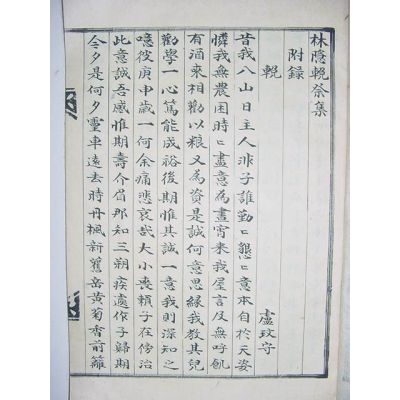 林隱輓祭集
附録
輓
盧玟守
昔我八山日主人非子誰勤〻懇〻意本自於天姿
憐我無農困時〻盡意為晝宵来我屋言及無呼飢
有酒來相勸以粮又為資是誠何意思緣我教其兒
勸學一心篤能成裕後期惟其誠一意我則深知之
噫彼庚申歲一何余痛悲哀哉大小喪賴子在傍治
此意誠吾感惟期壽介眉那知三朔疾遽作子歸期
今夕是何夕靈車遠去時丹楓新舊岳黃菊香前籬